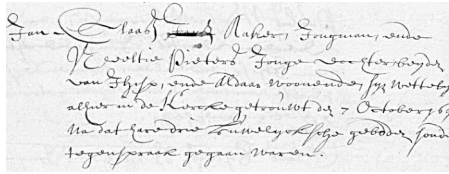 Jan Claasz Raker, Jongman, ende
Neeltie Pieters Jonge dochter beyde
van Jhisp, ende Aldaar woonende, sijn wettelij
alhier in de Kercke getrouwt den 7 October 169
Na dat hare drie houwelijcksche geboden sonde
tegenspraak gegaan waren.